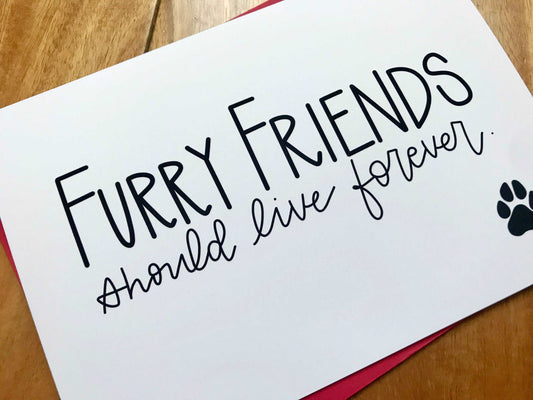 FURRY FRIENDS
should live forever.